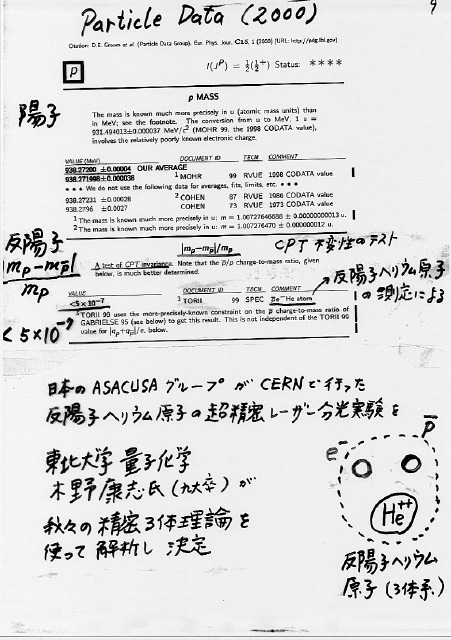 Particle Data (2000)
9
Citation: D.E. Groom et al. (Particle Data Group), Eur. Phys. Jour. C15, 1 (2000) (URL: http://pdg.lbl.gov)
p
I(J^P) = ½(½⁺) Status: ****
陽子
p MASS
The mass is known much more precisely in u (atomic mass units) than
in MeV; see the footnote. The conversion from u to MeV, 1 u =
931.494013±0.000037 MeV/c² (MOHR 99, the 1998 CODATA value),
involves the relatively poorly known electronic charge.
VALUE (MeV) DOCUMENT ID TECN COMMENT
938.27200 ±0.00004 OUR AVERAGE
938.271998±0.000038 ¹ MOHR 99 RVUE 1998 CODATA value
• • • We do not use the following data for averages, fits, limits, etc. • • •
938.27231 ±0.00028 ² COHEN 87 RVUE 1986 CODATA value
938.2796 ±0.0027 COHEN 73 RVUE 1973 CODATA value
¹ The mass is known much more precisely in u: m = 1.00727646688 ± 0.00000000013 u.
² The mass is known much more precisely in u: m = 1.007276470 ± 0.000000012 u.
反陽子
|mp−mp̄|/mp
CPT 不変性のテスト
|mp − mp̄|
mp
A test of CPT invariance. Note that the p̄/p charge-to-mass ratio, given
below, is much better determined.
反陽子ヘリウム原子
の測定による
VALUE DOCUMENT ID TECN COMMENT
<5 × 10⁻⁷ ³ TORII 99 SPEC p̄e⁻He atom
< 5×10⁻⁷
³ TORII 99 uses the more-precisely-known constraint on the p̄ charge-to-mass ratio of
GABRIELSE 95 (see below) to get this result. This is not independent of the TORII 99
value for |qp+qp̄|/e, below.
日本の ASACUSA グループ が CERN で行った
反陽子ヘリウム原子の超精密レーザー分光実験を
東北大学 量子化学
木野康志氏 (九大卒) が
我々の精密3体理論を
使って 解析し 決定
e⁻
p̄
He⁺⁺
反陽子ヘリウム
原子 (3体系)